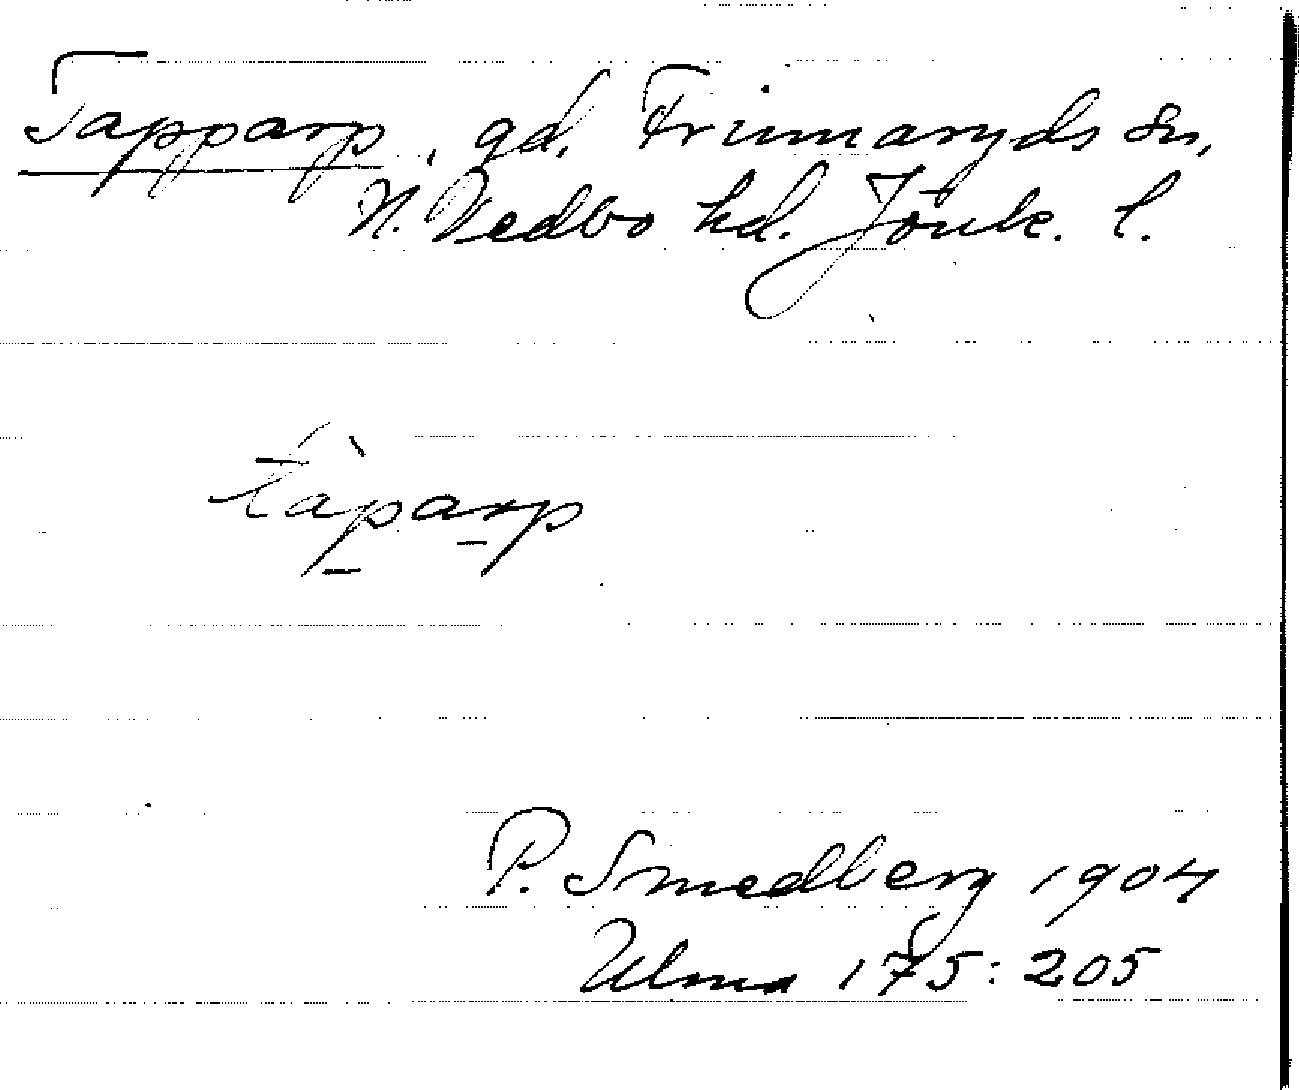 Tapparp, gd, Frinnaryds sn,
N. Vedbo hd. Jönk. l.
tàparp
P. Smedberg 1904
Ulma 175:205